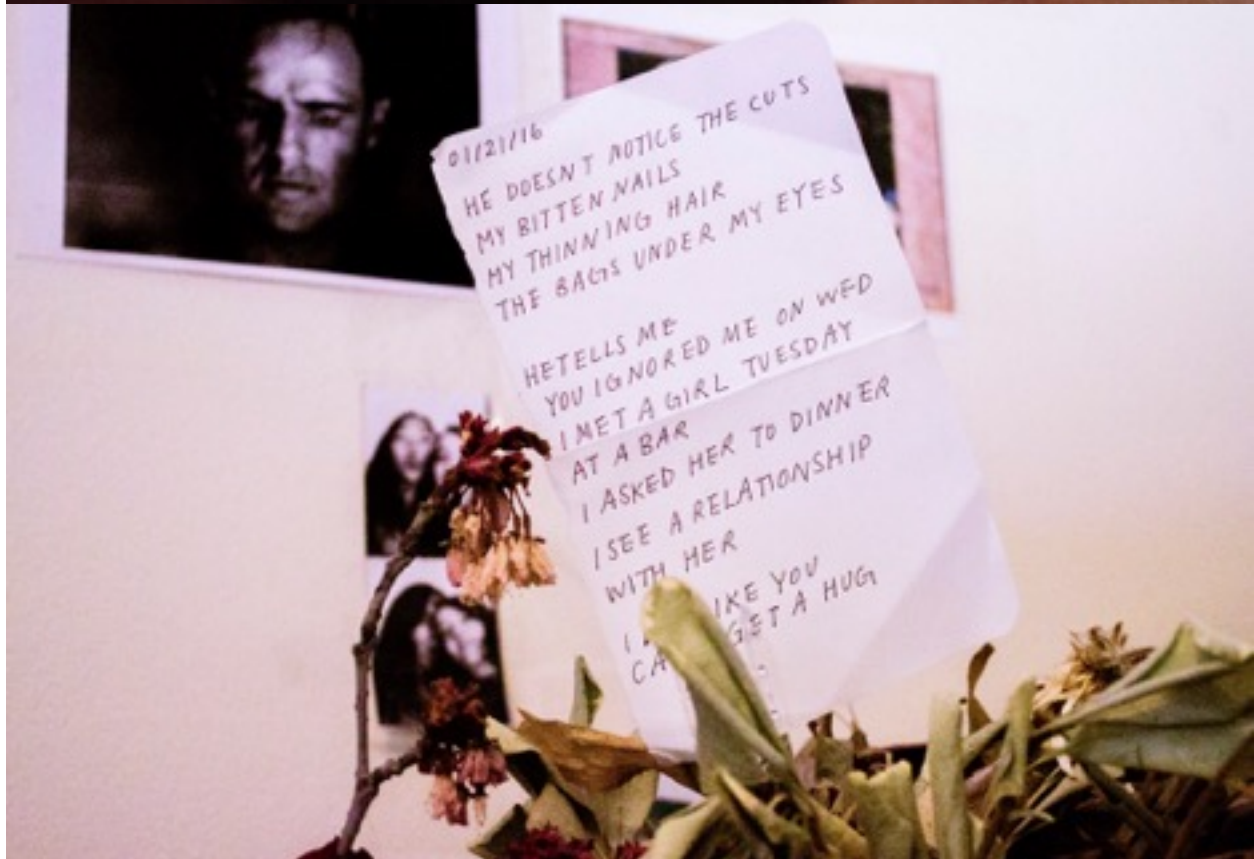 01/21/16
HE DOESN'T NOTICE THE CUTS
MY BITTEN NAILS
MY THINNING HAIR
THE BAGS UNDER MY EYES
HE TELLS ME
YOU IGNORED ME ON WED
I MET A GIRL TUESDAY
AT A BAR
I ASKED HER TO DINNER
I SEE A RELATIONSHIP
WITH HER
I YOU
GET A HUG